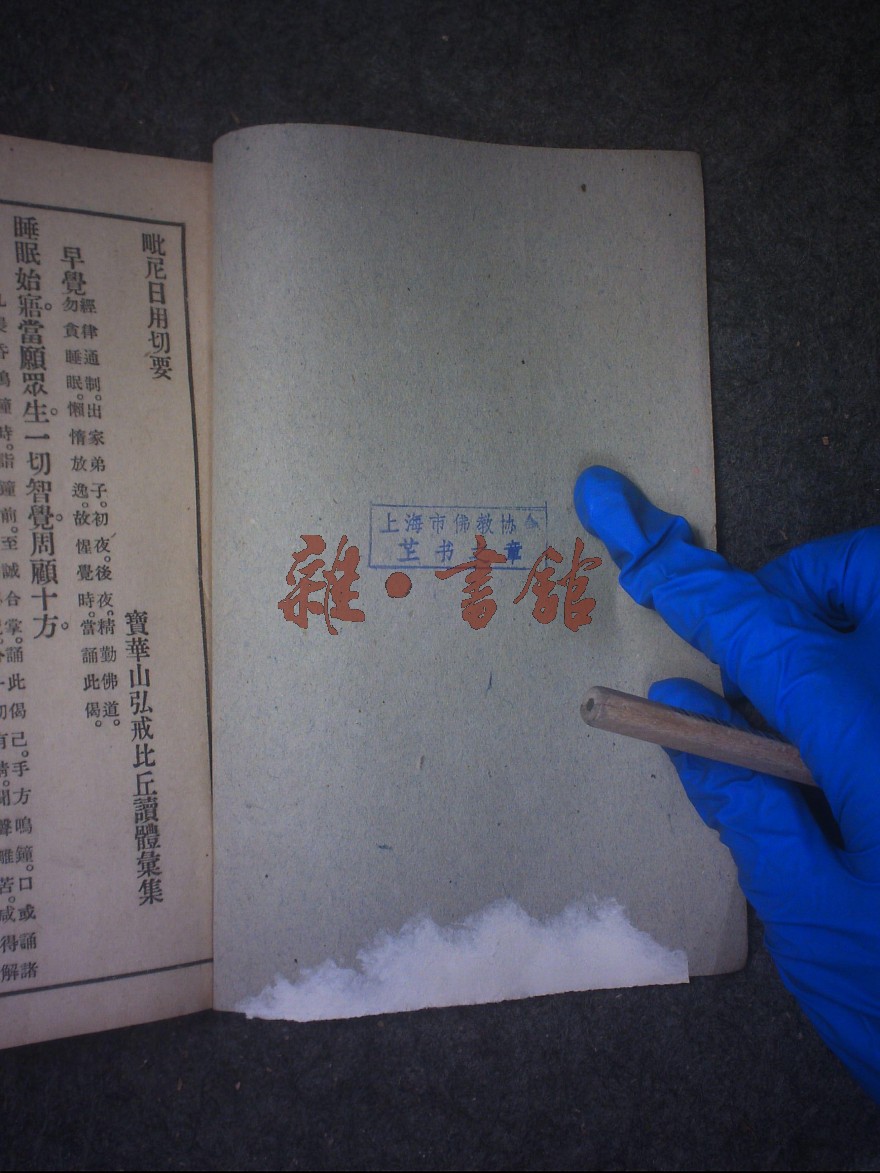 毗尼日用切要
寶華山弘戒比丘讀體彙集
早覺
經律通制。出家弟子。初夜。後夜。精勤佛道。
勿貪睡眠。懶惰放逸。故惺覺時。當誦此偈。
睡眠始寤。當願眾生。一切智覺。周顧十方。
鳴鐘時。詣鐘前。至誠合掌。誦此偈己。手方鳴鐘。口或誦諸
聞聲離苦。咸得解
上海市佛教协会
书之章
雜·書館